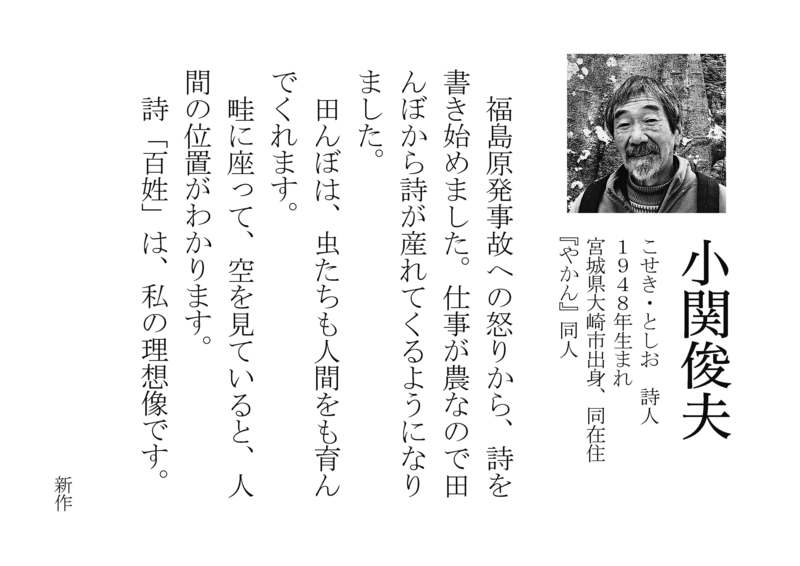 小関俊夫
こせき・としお　詩人
1948年生まれ
宮城県大崎市出身、同在住
『やかん』同人
福島原発事故への怒りから、詩を
書き始めました。仕事が農なので田
んぼから詩が産れてくるようになり
ました。
田んぼは、虫たちも人間をも育ん
でくれます。
畦に座って、空を見ていると、人
間の位置がわかります。
詩「百姓」は、私の理想像です。
新作